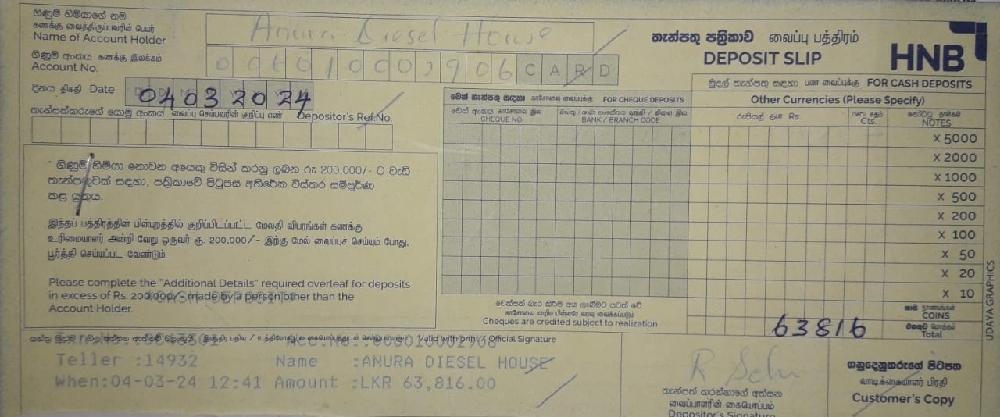 ගිණුම් හිමියාගේ නම
கணக்கு வைத்திருப்பவரின் பெயர்
Name of Account Holder
Anura Diesel House
ගිණුම් අංකය கணக்கு இலக்கம்
Account No.
CARD
දිනය திகதி Date 04032024
Depositor's Ref:No.
තැන්පතු පත්‍රිකාව வைப்பு பத்திரம்
DEPOSIT SLIP
HNB
මුදල් තැන්පතු සඳහා பண வைப்புக்கு FOR CASH DEPOSITS
Other Currencies (Please Specify)
චෙක් තැන්පතු සඳහා காசோலை வைப்புக்கு FOR CHEQUE DEPOSITS
CHEQUE NO
BANK / BRANCH CODE
රුපියල් ரூபா Rs.
Cts.
NOTES
x 5000
x 2000
x 1000
x 500
x 200
x 100
x 50
x 20
x 10
COINS
Total
63816
ගිණුම් හිමියා නොවන අයෙකු විසින් කරනු ලබන රු. 200,000/- ට වැඩි
තැන්පතුවක් සඳහා, පත්‍රිකාවේ පිටුපස අතිරේක විස්තර සම්පූර්ණ
කළ යුතුය.
இந்தப் பத்திரத்தின் பின்புறத்தில் குறிப்பிடப்பட்ட மேலதி விபரங்கள் கணக்கு
உரிமையாளர் அன்றி வேறு ஒருவர் ரூ. 200,000/- இற்கு மேல் வைப்புச் செய்யும் போது,
பூர்த்தி செய்யப்பட வேண்டும்
Please complete the "Additional Details" required overleaf for deposits
in excess of Rs. 200,000/- made by a person other than the
Account Holder.
Cheques are credited subject to realization
Official Signature
Teller :14932 Name :ANURA DIESEL HOUSE
When:04-03-24 12:41 Amount :LKR 63,816.00
තැන්පත් කරන්නාගේ අත්සන
வைப்பாளரின் கையொப்பம்
Depositor's Signature
ගනුදෙනුකරුගේ පිටපත
வாடிக்கையாளர் பிரதி
Customer's Copy
UDAYA GRAPHICS